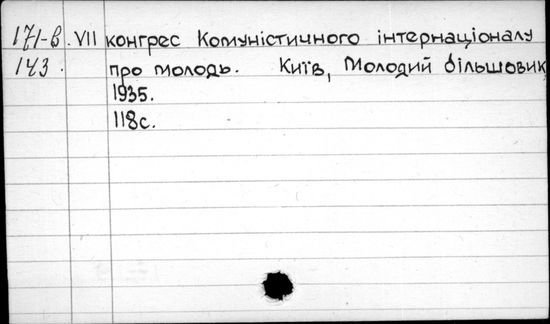 171-в. VII конгрес Комуністичного інтернаціоналу
143. про молодь. Київ, Молодий більшовик
1935.
118с.